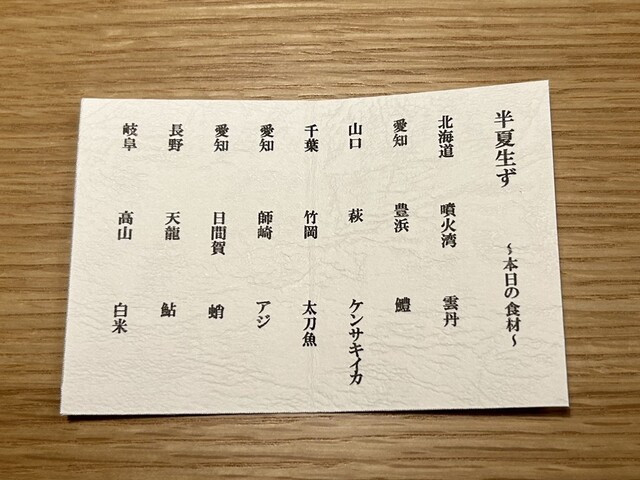 半夏生ず　～本日の食材～
北海道　噴火湾　雲丹
愛知　豊浜　鱧
山口　萩　ケンサキイカ
千葉　竹岡　太刀魚
愛知　師崎　アジ
愛知　日間賀　蛸
長野　天龍　鮎
岐阜　高山　白米